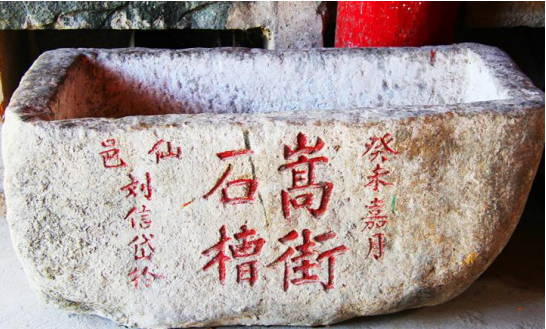 癸未嘉月
嵩街
石槽
仙邑
刘信岱